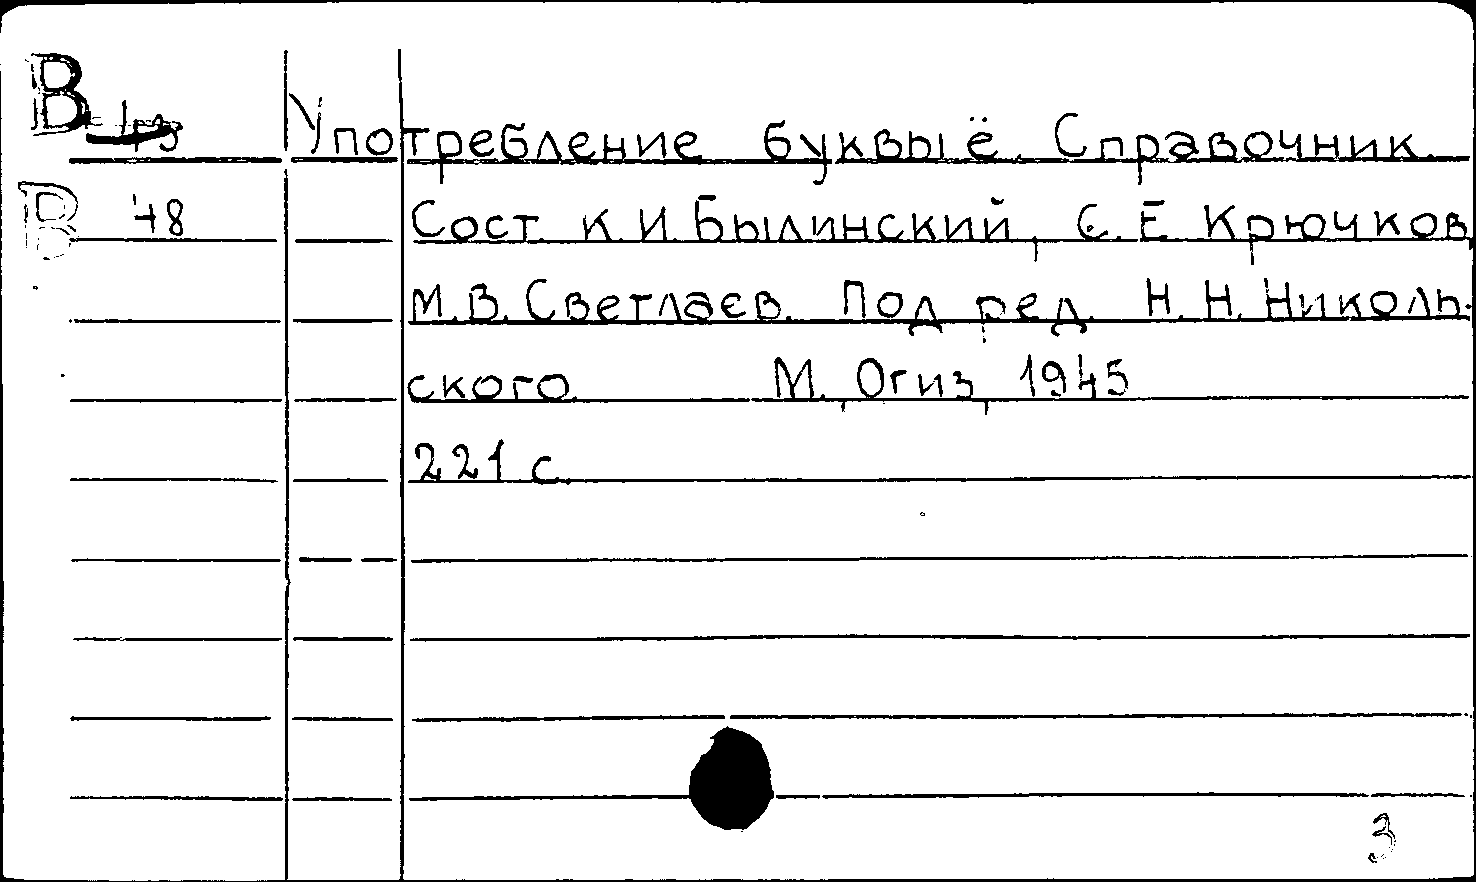 В
Употребление буквы ё. Справочник.
В 48 Сост. К.И. Былинский, С.Е. Крючков,
М.В. Светлаев. Под ред. Н.Н. Николь-
ского. М., Огиз, 1945
221 с.
3